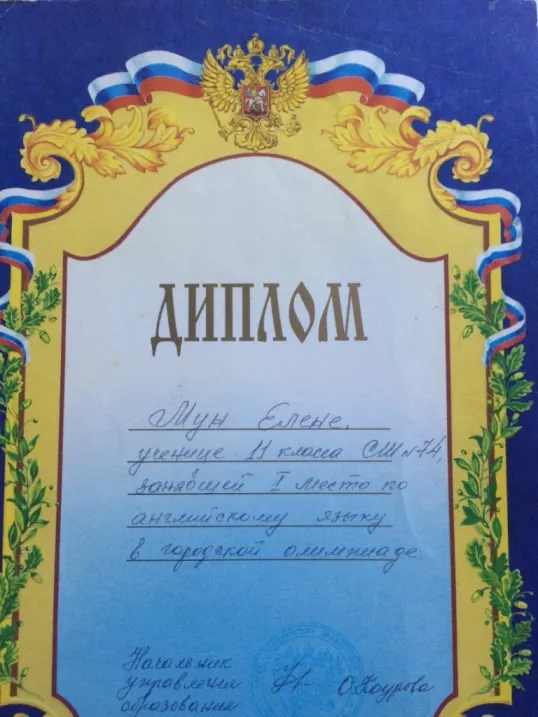 ДИПЛОМ
Мун Елене,
ученице 11 класса СШ №74,
занявшей I место по
английскому языку
в городской олимпиаде.
Начальник
управления
образования
О. Каурова